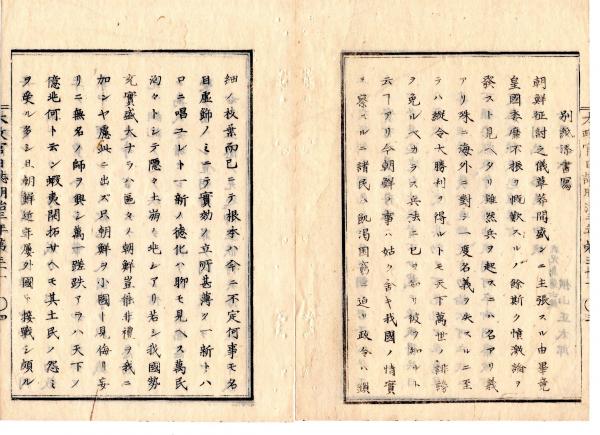 別紙添書冩
朝鮮征討之儀草莽間盛ンニ主張スル由畢竟
皇國委靡不振ヲ慨歎スルノ餘斯ク憤激論ヲ
發スト見ヘタリ雖然兵ヲ起スニハ名アリ義
アリ殊ニ海外ニ對シ一度名義ヲ失スルニ至
テハ縱令大勝利ヲ得ルトモ天下萬世ノ誹謗
ヲ免ルヘカラス兵法ニ己ヲ知リ彼ヲ知ルト
云フアリ今朝鮮ノ事ハ姑ク舎キ我國ノ情實
ヲ察スルニ諸民ハ飢渇困窮ニ迫リ政令ハ瑣
細ノ枝葉而已ニテ根本ハ今ニ不定何事モ名
目虚飾ノミニテ實効ノ立所甚薄ク一新トハ
口ニ唱ユレトモ一新ノ徳化ハ聊モ見ヘス萬民
洶々トシテ隱々土崩ノ兆シアリ若シ我國勢
充實盛大ナラハ區々ノ朝鮮豈能非禮ヲ我ニ
加ンヤ慮此ニ出ス只朝鮮ヲ小國ト見侮リ妄
リニ無名ノ師ヲ興シ萬一蹉跌アラハ天下ノ
億兆何ト云ン蝦夷開拓サヘモ其土民ノ怨ミ
ヲ受ル多シ且朝鮮近年屡外國ト接戰シ頗ル